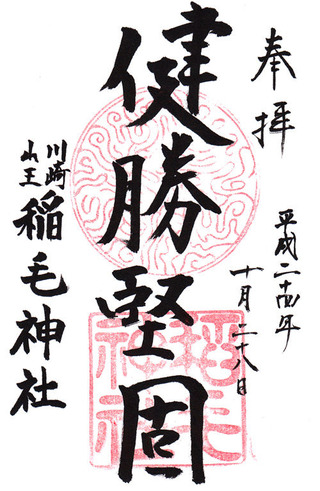 奉拝
平成二十四年
十月二十八日
健勝堅固
川崎
山王
稲毛神社
稲毛
神社